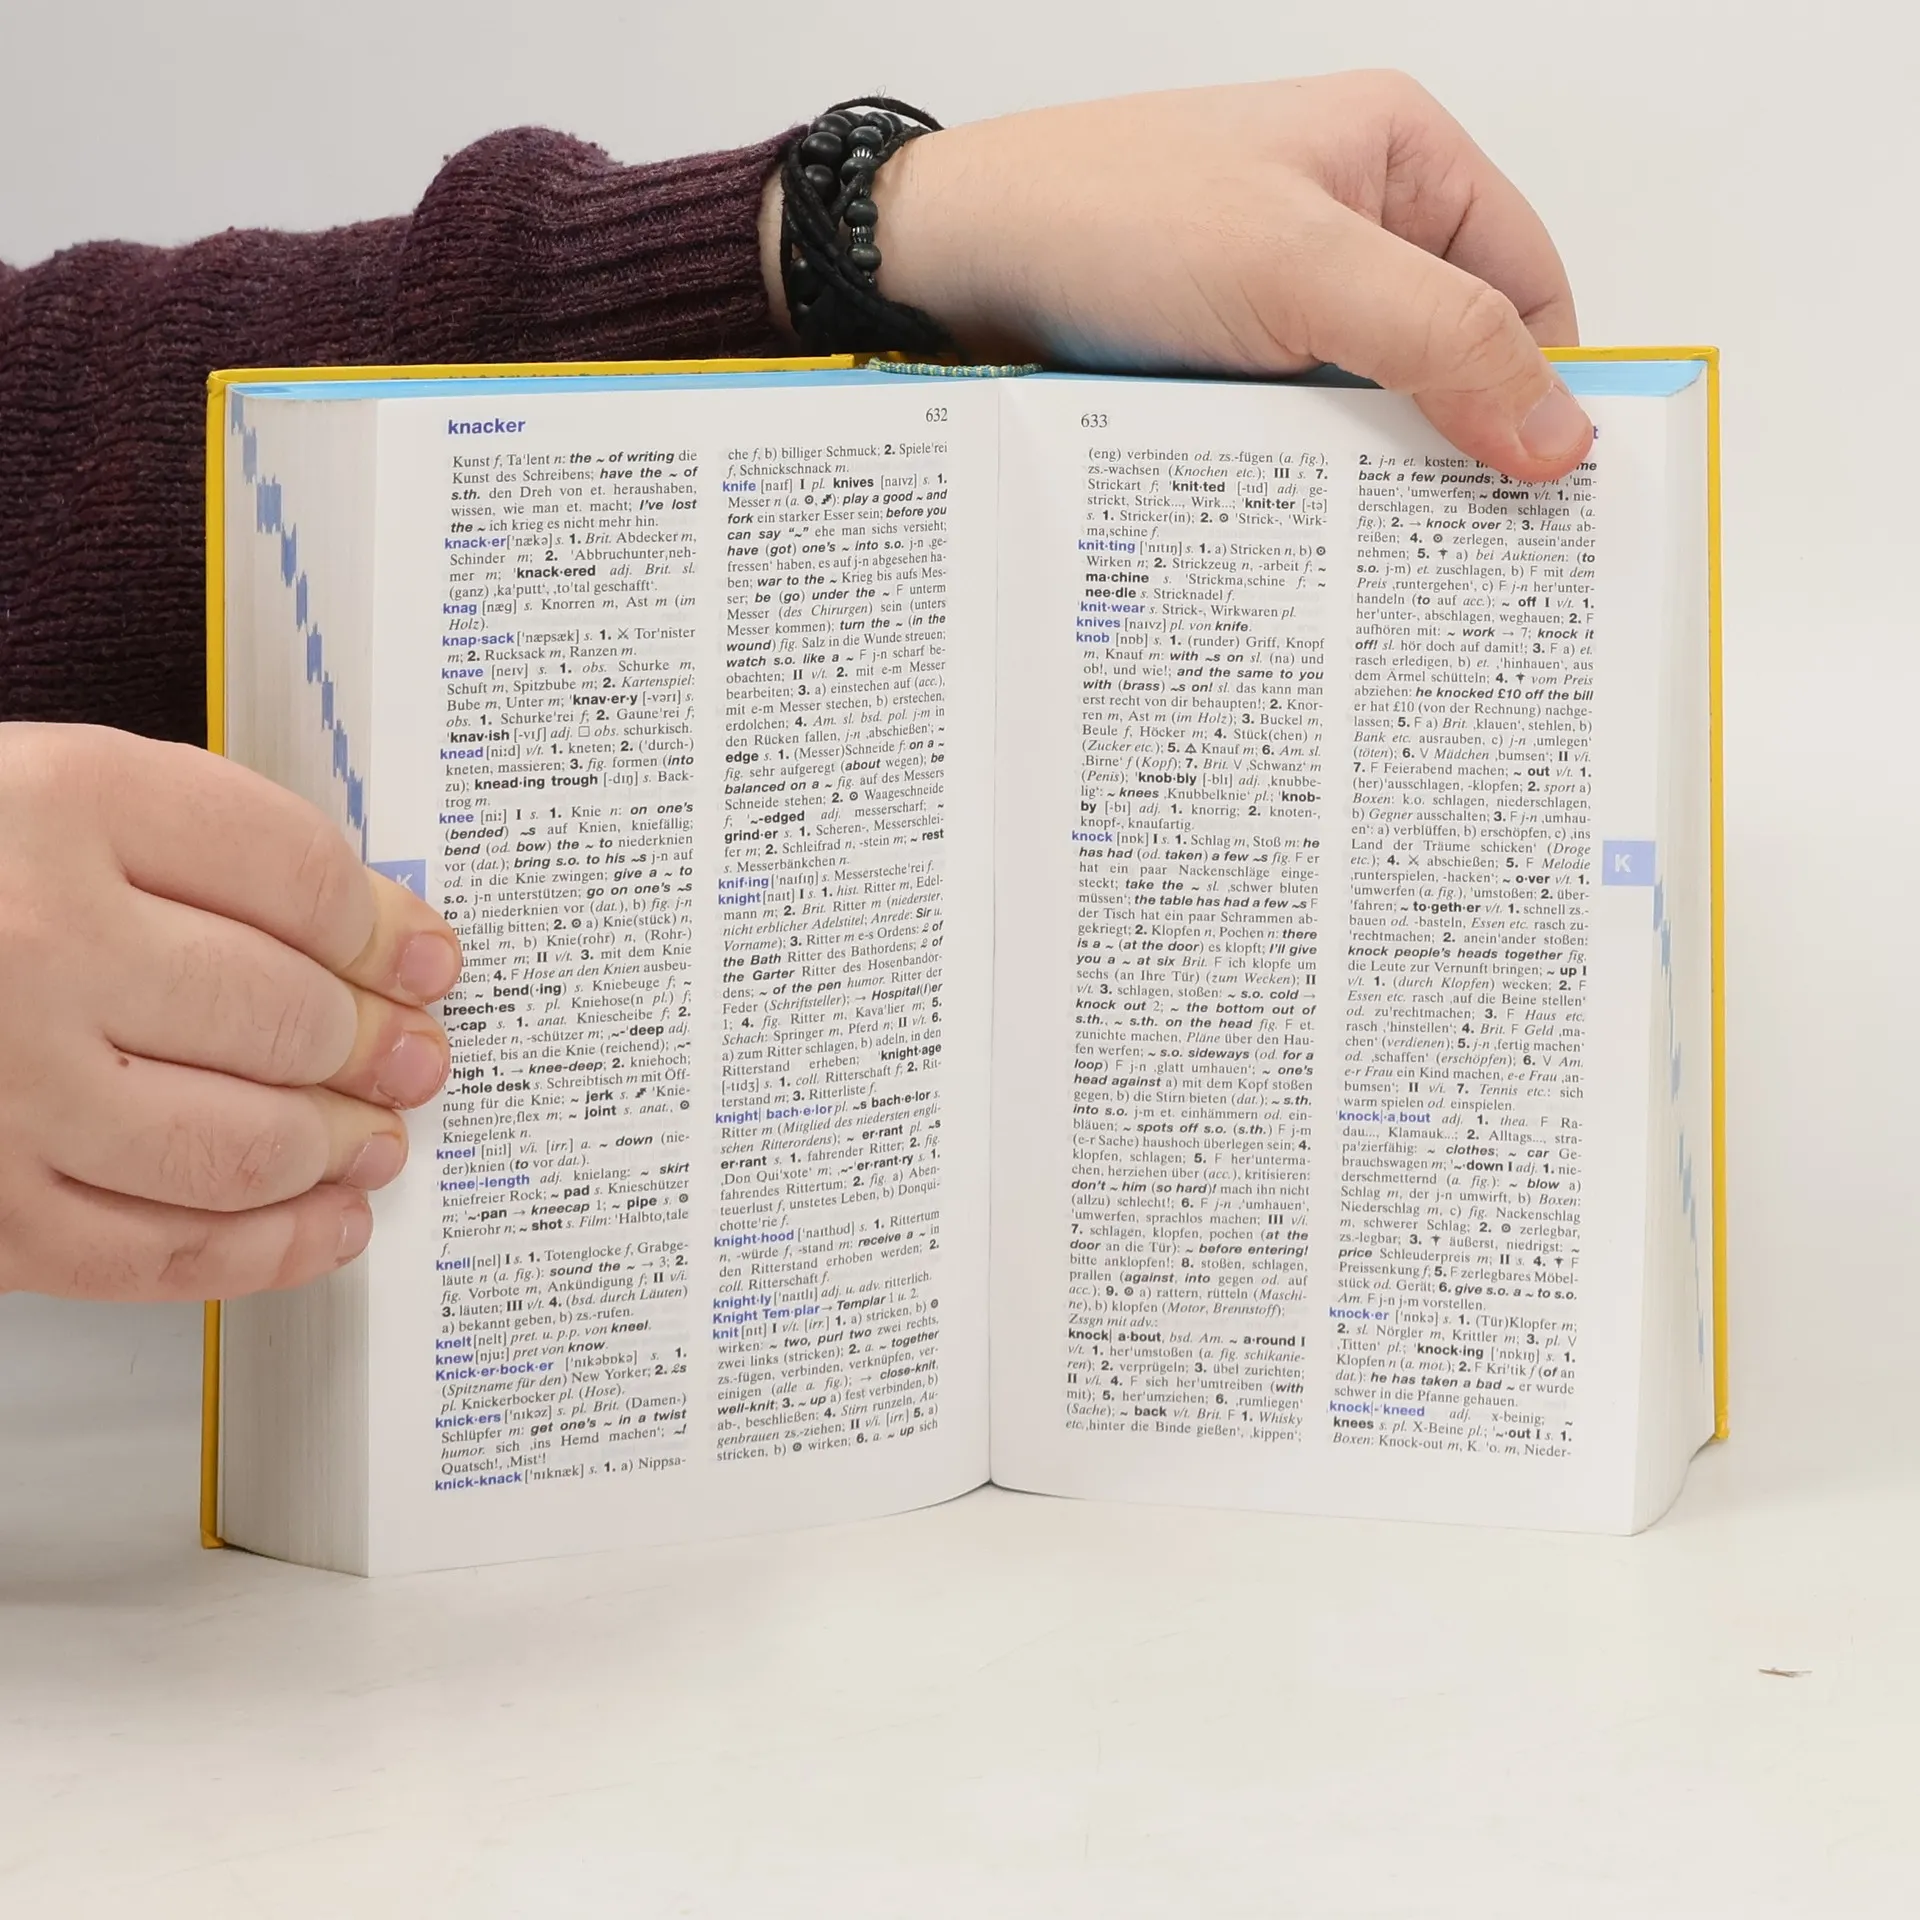 knacker
632
Kunst f, Ta'lent n: the ~ of writing die
Kunst des Schreibens; have the ~ of
s.th. den Dreh von et. heraushaben,
wissen, wie man et. macht; I've lost
the ~ ich krieg es nicht mehr hin.
knack·er ['nækə] s. 1. Brit. Abdecker m,
Schinder m; 2. 'Abbruchunter,neh-
mer m; 'knack·ered adj. Brit. sl.
(ganz) ,ka'putt', ,to'tal geschafft'.
knag [næg] s. Knorren m, Ast m (im
Holz).
knap·sack ['næpsæk] s. 1. ⚔ Tor'nister
m; 2. Rucksack m, Ranzen m.
knave [neɪv] s. 1. obs. Schurke m,
Schuft m, Spitzbube m; 2. Kartenspiel:
Bube m, Unter m; 'knav·er·y [-vərɪ] s.
obs. 1. Schurke'rei f; 2. Gaune'rei f;
'knav·ish [-vɪʃ] adj. □ obs. schurkisch.
knead [niːd] v/t. 1. kneten; 2. ('durch-)
kneten, massieren; 3. fig. formen (into
zu); knead·ing trough [-dɪŋ] s. Back-
trog m.
knee [niː] I s. 1. Knie n: on one's
(bended) ~s auf Knien, kniefällig;
bend (od. bow) the ~ to niederknien
vor (dat.); bring s.o. to his ~s j-n auf
od. in die Knie zwingen; give a ~ to
s.o. j-n unterstützen; go on one's ~s
to a) niederknien vor (dat.), b) fig. j-n
niefällig bitten; 2. ⚙ a) Knie(stück) n,
inkel m, b) Knie(rohr) n, (Rohr-)
ümmer m; II v/t. 3. mit dem Knie
oßen; 4. F Hose an den Knien ausbeu-
len; ~ bend(·ing) s. Kniebeuge f; ~
breech·es s. pl. Kniehose(n pl.) f;
'~·cap s. 1. anat. Kniescheibe f; 2.
Knieleder n, -schützer m; ,~-'deep adj.
nietief, bis an die Knie (reichend); ,~-
'high 1. → knee-deep; 2. kniehoch;
'~-hole desk s. Schreibtisch m mit Öff-
nung für die Knie; ~ jerk s. ⚕ 'Knie-
(sehnen)re,flex m; ~ joint s. anat., ⚙
Kniegelenk n.
kneel [niːl] v/i. [irr.] a. ~ down (nie-
der)knien (to vor dat.).
'knee|-length adj. knielang: ~ skirt
kniefreier Rock; ~ pad s. Knieschützer
m; '~·pan → kneecap 1; ~ pipe s. ⚙
Knierohr n; ~ shot s. Film: 'Halbto,tale
f.
knell [nel] I s. 1. Totenglocke f, Grabge-
läute n (a. fig.): sound the ~ → 3; 2.
fig. Vorbote m, Ankündigung f; II v/i.
3. läuten; III v/t. 4. (bsd. durch Läuten)
a) bekannt geben, b) zs.-rufen.
knelt [nelt] pret. u. p.p. von kneel.
knew [njuː] pret von know.
Knick·er·bock·er ['nɪkəbɒkə] s. 1.
(Spitzname für den) New Yorker; 2. ℒs
pl. Knickerbocker pl. (Hose).
knick·ers ['nɪkəz] s. pl. Brit. (Damen-)
Schlüpfer m: get one's ~ in a twist
humor. sich ,ins Hemd machen'; ~!
Quatsch!, ,Mist'!
knick-knack ['nɪknæk] s. 1. a) Nippsa-
che f, b) billiger Schmuck; 2. Spiele'rei
f, Schnickschnack m.
knife [naɪf] I pl. knives [naɪvz] s. 1.
Messer n (a. ⚙, ⚕): play a good ~ and
fork ein starker Esser sein; before you
can say "~" ehe man sichs versieht;
have (got) one's ~ into s.o. j-n ,ge-
fressen' haben, es auf j-n abgesehen ha-
ben; war to the ~ Krieg bis aufs Mes-
ser; be (go) under the ~ F unterm
Messer (des Chirurgen) sein (unters
Messer kommen); turn the ~ (in the
wound) fig. Salz in die Wunde streuen;
watch s.o. like a ~ F j-n scharf be-
obachten; II v/t. 2. mit e-m Messer
bearbeiten; 3. a) einstechen auf (acc.),
mit e-m Messer stechen, b) erstechen,
erdolchen; 4. Am. sl. bsd. pol. j-m in
den Rücken fallen, j-n ,abschießen'; ~
edge s. 1. (Messer)Schneide f: on a ~
fig. sehr aufgeregt (about wegen); be
balanced on a ~ fig. auf des Messers
Schneide stehen; 2. ⚙ Waageschneide
f; '~-edged adj. messerscharf; ~
grind·er s. 1. Scheren-, Messerschlei-
fer m; 2. Schleifrad n, -stein m; ~ rest
s. Messerbänkchen n.
knif·ing ['naɪfɪŋ] s. Messersteche'rei f.
knight [naɪt] I s. 1. hist. Ritter m, Edel-
mann m; 2. Brit. Ritter m (niederster,
nicht erblicher Adelstitel; Anrede: Sir u.
Vorname); 3. Ritter m e-s Ordens: ℒ of
the Bath Ritter des Bathordens; ℒ of
the Garter Ritter des Hosenbandor-
dens; ~ of the pen humor. Ritter der
Feder (Schriftsteller); → Hospital(l)er
1; 4. fig. Ritter m, Kava'lier m; 5.
Schach: Springer m, Pferd n; II v/t. 6.
a) zum Ritter schlagen, b) adeln, in den
Ritterstand erheben; 'knight·age
[-tɪdʒ] s. 1. coll. Ritterschaft f; 2. Rit-
terstand m; 3. Ritterliste f.
knight| bach·e·lor pl. ~s bach·e·lor s.
Ritter m (Mitglied des niedersten engli-
schen Ritterordens); ~ er·rant pl. ~s
er·rant s. 1. fahrender Ritter; 2. fig.
,Don Qui'xote' m; ,~-'er·rant·ry s. 1.
fahrendes Rittertum; 2. fig. a) Aben-
teuerlust f, unstetes Leben, b) Donqui-
chotte'rie f.
knight·hood ['naɪthʊd] s. 1. Rittertum
n, -würde f, -stand m: receive a ~ in
den Ritterstand erhoben werden; 2.
coll. Ritterschaft f.
knight·ly ['naɪtlɪ] adj. u. adv. ritterlich.
Knight Tem·plar → Templar 1 u. 2.
knit [nɪt] I v/t. [irr.] 1. a) stricken, b) ⚙
wirken: ~ two, purl two zwei rechts,
zwei links (stricken); 2. a. ~ together
zs.-fügen, verbinden, verknüpfen, ver-
einigen (alle a. fig.); → close-knit,
well-knit; 3. ~ up a) fest verbinden, b)
ab-, beschließen; 4. Stirn runzeln, Au-
genbrauen zs.-ziehen; II v/i. [irr.] 5. a)
stricken, b) ⚙ wirken; 6. a. ~ up sich
K
633
t
(eng) verbinden od. zs.-fügen (a. fig.),
zs.-wachsen (Knochen etc.); III s. 7.
Strickart f; 'knit·ted [-tɪd] adj. ge-
strickt, Strick..., Wirk...; 'knit·ter [-tə]
s. 1. Stricker(in); 2. ⚙ 'Strick-, 'Wirk-
ma,schine f.
knit·ting ['nɪtɪŋ] s. 1. a) Stricken n, b) ⚙
Wirken n; 2. Strickzeug n, -arbeit f; ~
ma·chine s. 'Strickma,schine f; ~
nee·dle s. Stricknadel f.
'knit·wear s. Strick-, Wirkwaren pl.
knives [naɪvz] pl. von knife.
knob [nɒb] s. 1. (runder) Griff, Knopf
m, Knauf m: with ~s on sl. (na) und
ob!, und wie!; and the same to you
with (brass) ~s on! sl. das kann man
erst recht von dir behaupten!; 2. Knor-
ren m, Ast m (im Holz); 3. Buckel m,
Beule f, Höcker m; 4. Stück(chen) n
(Zucker etc.); 5. △ Knauf m; 6. Am. sl.
,Birne' f (Kopf); 7. Brit. V ,Schwanz' m
(Penis); 'knob·bly [-blɪ] adj. ,knubbe-
lig': ~ knees ,Knubbelknie' pl.; 'knob-
by [-bɪ] adj. 1. knorrig; 2. knoten-,
knopf-, knaufartig.
knock [nɒk] I s. 1. Schlag m, Stoß m: he
has had (od. taken) a few ~s fig. F er
hat ein paar Nackenschläge einge-
steckt; take the ~ sl. ,schwer bluten
müssen'; the table has had a few ~s F
der Tisch hat ein paar Schrammen ab-
gekriegt; 2. Klopfen n, Pochen n: there
is a ~ (at the door) es klopft; I'll give
you a ~ at six Brit. F ich klopfe um
sechs (an Ihre Tür) (zum Wecken); II
v/t. 3. schlagen, stoßen: ~ s.o. cold →
knock out 2; ~ the bottom out of
s.th., ~ s.th. on the head fig. F et.
zunichte machen, Pläne über den Hau-
fen werfen; ~ s.o. sideways (od. for a
loop) F j-n ,glatt umhauen'; ~ one's
head against a) mit dem Kopf stoßen
gegen, b) die Stirn bieten (dat.); ~ s.th.
into s.o. j-m et. einhämmern od. ein-
bläuen; ~ spots off s.o. (s.th.) F j-m
(e-r Sache) haushoch überlegen sein; 4.
klopfen, schlagen; 5. F her'unterma-
chen, herziehen über (acc.), kritisieren:
don't ~ him (so hard)! mach ihn nicht
(allzu) schlecht!; 6. F j-n ,'umhauen',
'umwerfen, sprachlos machen; III v/i.
7. schlagen, klopfen, pochen (at the
door an die Tür): ~ before entering!
bitte anklopfen!; 8. stoßen, schlagen,
prallen (against, into gegen od. auf
acc.); 9. ⚙ a) rattern, rütteln (Maschi-
ne), b) klopfen (Motor, Brennstoff);
Zssgn mit adv.:
knock| a·bout, bsd. Am. ~ a·round I
v/t. 1. her'umstoßen (a. fig. schikanie-
ren); 2. verprügeln; 3. übel zurichten;
II v/i. 4. F sich her'umtreiben (with
mit); 5. her'umziehen; 6. ,rumliegen'
(Sache); ~ back v/t. Brit. F 1. Whisky
etc. ,hinter die Binde gießen', ,kippen';
2. j-n et. kosten: me
back a few pounds; 3. ,'um-
hauen', 'umwerfen; ~ down v/t. 1. nie-
derschlagen, zu Boden schlagen (a.
fig.); 2. → knock over 2; 3. Haus ab-
reißen; 4. ⚙ zerlegen, ausein'ander
nehmen; 5. ✝ a) bei Auktionen: (to
s.o. j-m) et. zuschlagen, b) F mit dem
Preis ,runtergehen', c) F j-n her'unter-
handeln (to auf acc.); ~ off I v/t. 1.
her'unter-, abschlagen, weghauen; 2. F
aufhören mit: ~ work → 7; knock it
off! sl. hör doch auf damit!; 3. F a) et.
rasch erledigen, b) et. ,'hinhauen', aus
dem Ärmel schütteln; 4. ✝ vom Preis
abziehen: he knocked £10 off the bill
er hat £10 (von der Rechnung) nachge-
lassen; 5. F a) Brit. ,klauen', stehlen, b)
Bank etc. ausrauben, c) j-n ,umlegen'
(töten); 6. V Mädchen ,bumsen'; II v/i.
7. F Feierabend machen; ~ out v/t. 1.
(her)'ausschlagen, -klopfen; 2. sport a)
Boxen: k.o. schlagen, niederschlagen,
b) Gegner ausschalten; 3. F j-n ,umhau-
en': a) verblüffen, b) erschöpfen, c) ,ins
Land der Träume schicken' (Droge
etc.); 4. ⚔ abschießen; 5. F Melodie
,runterspielen, -hacken'; ~ o·ver v/t. 1.
'umwerfen (a. fig.), 'umstoßen; 2. über-
'fahren; ~ to·geth·er v/t. 1. schnell zs.-
bauen od. -basteln, Essen etc. rasch zu-
'rechtmachen; 2. anein'ander stoßen:
knock people's heads together fig.
die Leute zur Vernunft bringen; ~ up I
v/t. 1. (durch Klopfen) wecken; 2. F
Essen etc. rasch ,auf die Beine stellen'
od. zu'rechtmachen; 3. F Haus etc.
rasch ,'hinstellen'; 4. Brit. F Geld ,ma-
chen' (verdienen); 5. j-n ,fertig machen'
od. ,schaffen' (erschöpfen); 6. V Am.
e-r Frau ein Kind machen, e-e Frau ,an-
bumsen'; II v/i. 7. Tennis etc.: sich
warm spielen od. einspielen.
'knock|·a,bout adj. 1. thea. F Ra-
dau..., Klamauk...; 2. Alltags..., stra-
pa'zierfähig: ~ clothes; ~ car Ge-
brauchswagen m; '~·down I adj. 1. nie-
derschmetternd (a. fig.): ~ blow a)
Schlag m, der j-n umwirft, b) Boxen:
Niederschlag m, c) fig. Nackenschlag
m, schwerer Schlag; 2. ⚙ zerlegbar,
zs.-legbar; 3. ✝ äußerst, niedrigst: ~
price Schleuderpreis m; II s. 4. ✝ F
Preissenkung f; 5. F zerlegbares Möbel-
stück od. Gerät; 6. give s.o. a ~ to s.o.
Am. F j-n j-m vorstellen.
knock·er ['nɒkə] s. 1. (Tür)Klopfer m;
2. sl. Nörgler m, Krittler m; 3. pl. V
,Titten' pl.; 'knock·ing ['nɒkɪŋ] s. 1.
Klopfen n (a. mot.); 2. F Kri'tik f (of an
dat.): he has taken a bad ~ er wurde
schwer in die Pfanne gehauen.
,knock|-'kneed adj. x-beinig; ~
knees s. pl. X-Beine pl.; '~·out I s. 1.
Boxen: Knock-out m, K. 'o. m, Nieder-
K